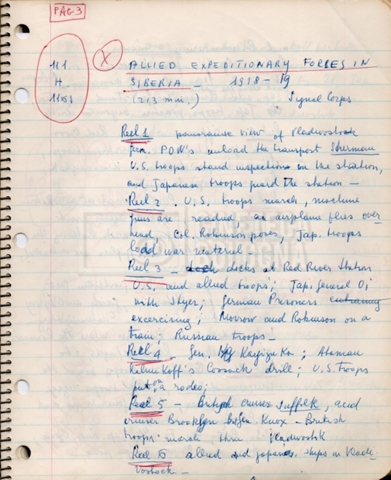 PAG 3
111
H
1151
X
ALLIED EXPEDITIONARY FORCES IN
SIBERIA - 1918-19
(213 mm.) Signal Corps
Reel 1 panoramic view of Vladivostok
P.O.W's unload the transport Sherman
U.S. troops stand inspections in the station,
and Japanese troops guard the station -
Reel 2. U.S. troops march, machine
guns are readied, as airplane flies over
head, Col. Robinson poses, Jap. troops
load war materiel.
Reel 3 - docks at Red River Station
U.S. and allied troops; Jap. General Oi
with Styer; German Prisoners
excercising; Morrow and Robinson on a
train; Russian troops -
Reel 4 - Gen. Ataman
Kalmikoff's Cossack drill; U.S. troops
put on a rodeo;
Reel 5 - British cruiser Suffolk, and
cruiser Brooklyn Knox - British
troops march thru Vladivostok
Reel 6 allied and japanese ships in Vladi-
vostock -